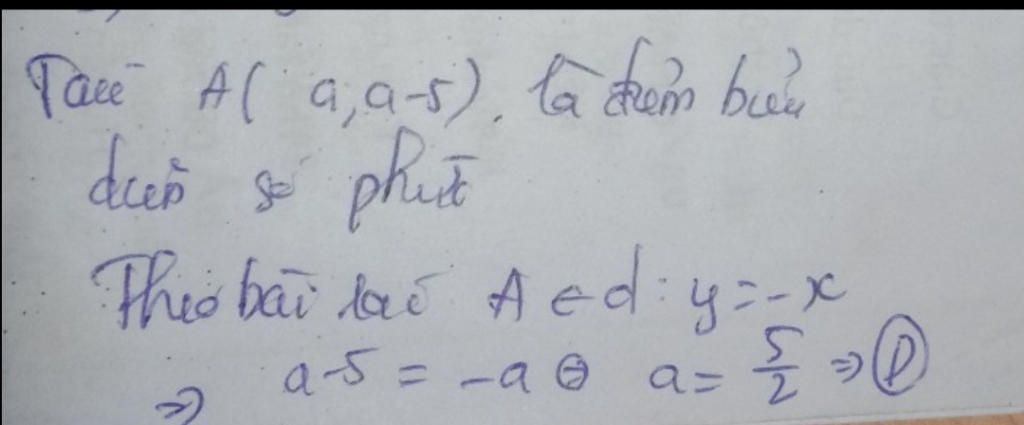 Ta có A( a, a-5). là điểm biểu
diễn số phức
Theo bài ta có A ∈ d : y = -x
⇒ a-5 = -a ⇔ a = 5/2 ⇒ D